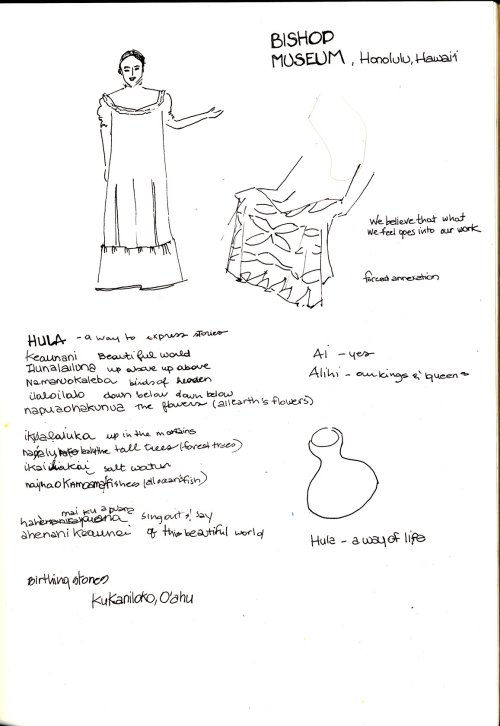 BISHOP
MUSEUM, Honolulu, Hawai'i
We believe that what
we feel goes into our work
forced annexation
HULA - a way to express stories
Keaunani Beautiful world
Ilunalailuna up above up above
birds of heaven
ilaloilalo down below down below
napuaohakunua The flowers (all earth's flowers)
up in the mountains
the tall trees (forest trees)
salt water
fishes (all ocean fish)
sing out & say
ahenani keaunani of this beautiful world
Birthing stones
Kukaniloko, O'ahu
Ai - yes
Aliihi - our kings & queens
Hula - a way of life